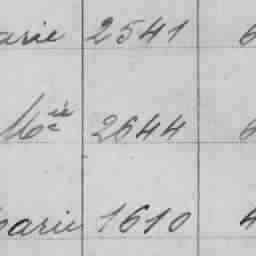 arie 2541 6
Mée 2644 6
arie 1610 4